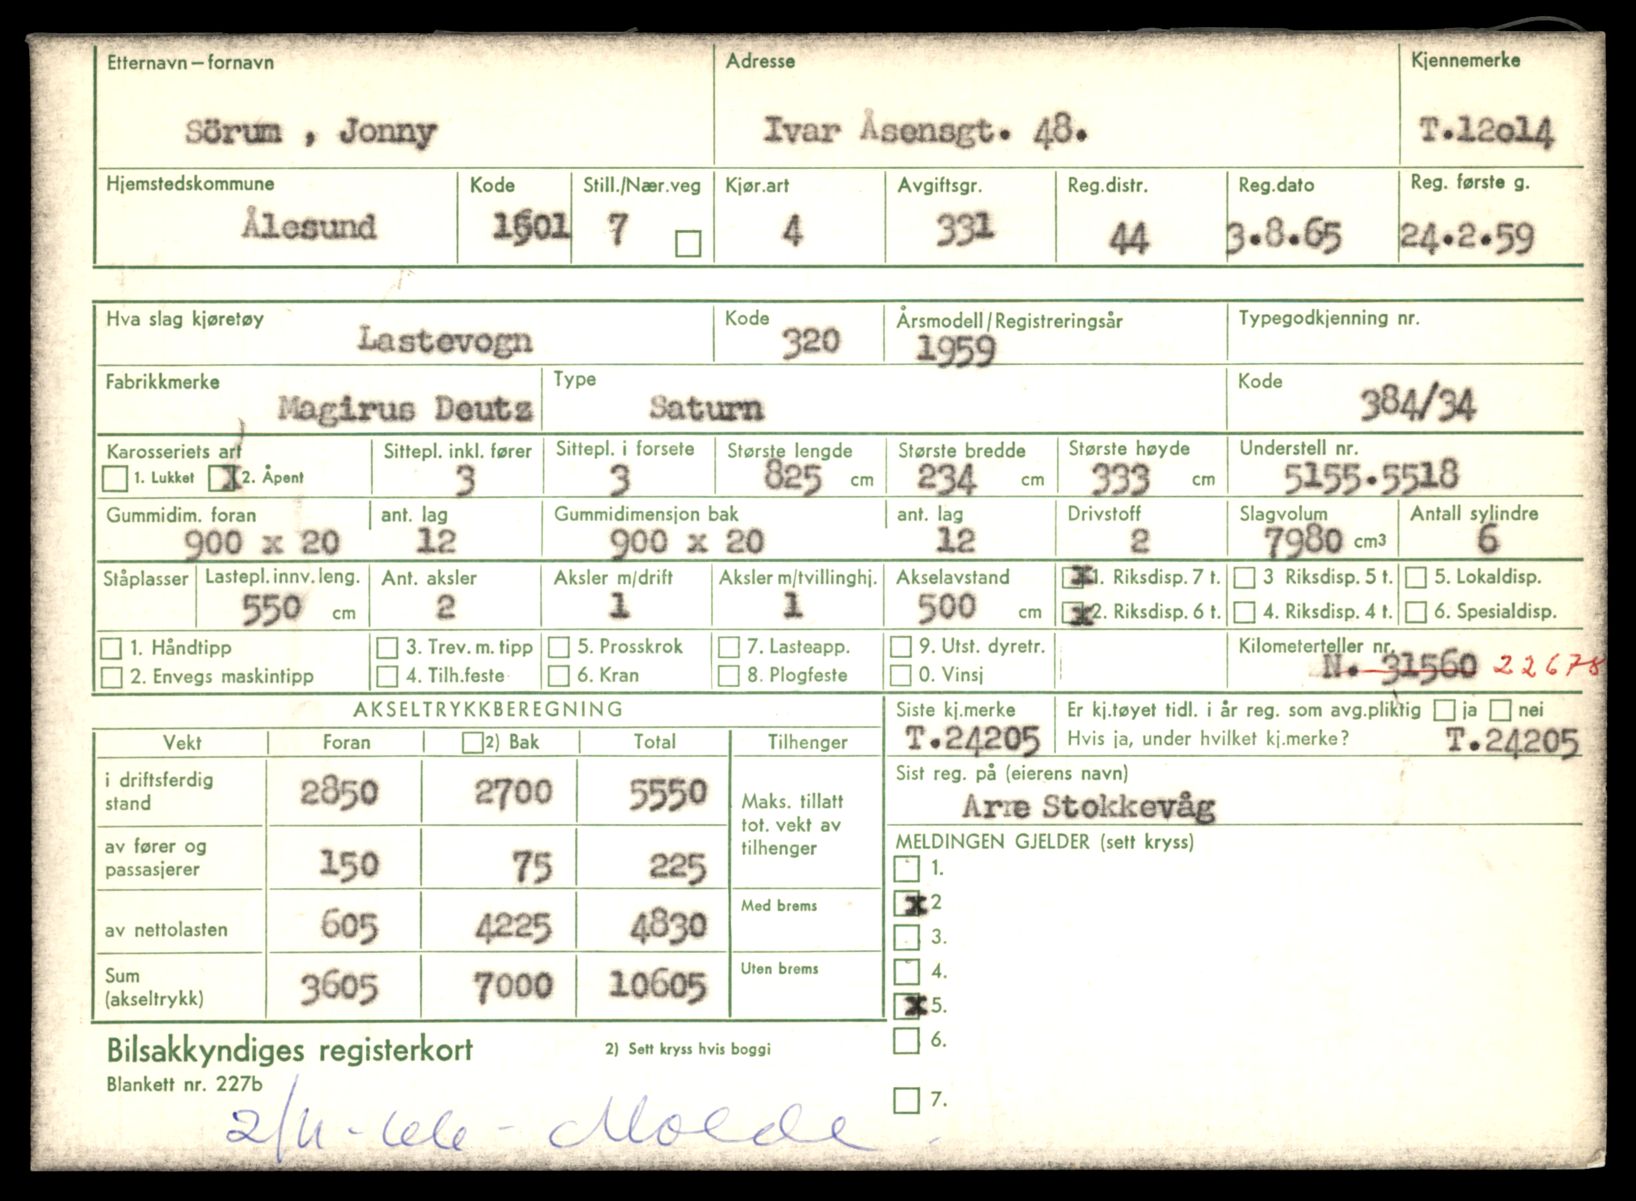 Etternavn – fornavn Adresse Kjennemerke
Sörum , Jonny Ivar Åsensgt. 48. T.12o14
Hjemstedskommune Kode Still./Nær.veg Kjør.art Avgiftsgr. Reg.distr. Reg.dato Reg. første g.
Ålesund 1501 7 4 331 44 3.8.65 24.2.59
Hva slag kjøretøy Kode Årsmodell/Registreringsår Typegodkjenning nr.
Lastevogn 320 1959
Fabrikkmerke Type Kode
Magirus Deutz Saturn 384/34
Karosseriets art Sittepl. inkl. fører Sittepl. i forsete Største lengde Største bredde Største høyde Understell nr.
1. Lukket X 2. Åpent 3 3 825 cm 234 cm 333 cm 5155.5518
Gummidim. foran ant. lag Gummidimensjon bak ant. lag Drivstoff Slagvolum Antall sylindre
900 x 20 12 900 x 20 12 2 7980 cm3 6
Ståplasser Lastepl. innv. leng. Ant. aksler Aksler m/drift Aksler m/tvillinghj. Akselavstand x 1. Riksdisp. 7 t. 3 Riksdisp. 5 t. 5. Lokaldisp.
550 cm 2 1 1 500 cm x 2. Riksdisp. 6 t. 4. Riksdisp. 4 t. 6. Spesialdisp.
1. Håndtipp 3. Trev. m. tipp 5. Prosskrok 7. Lasteapp. 9. Utst. dyretr. Kilometerteller nr.
2. Envegs maskintipp 4. Tilh.feste 6. Kran 8. Plogfeste 0. Vinsj N. 31560 22678
AKSELTRYKKBEREGNING Siste kj.merke Er kj.tøyet tidl. i år reg. som avg.pliktig ja nei
Vekt Foran 2) Bak Total Tilhenger T.24205 Hvis ja, under hvilket kj.merke? T.24205
i driftsferdig stand 2850 2700 5550 Maks. tillatt tot. vekt av tilhenger
Sist reg. på (eierens navn)
Arne Stokkevåg
av fører og passasjerer 150 75 225
MELDINGEN GJELDER (sett kryss)
1.
av nettolasten 605 4225 4830 Med brems
x 2
3.
Sum (akseltrykk) 3605 7000 10605 Uten brems
4.
x 5.
6.
7.
Bilsakkyndiges registerkort 2) Sett kryss hvis boggi
Blankett nr. 227b
2/11-66 - Molde.